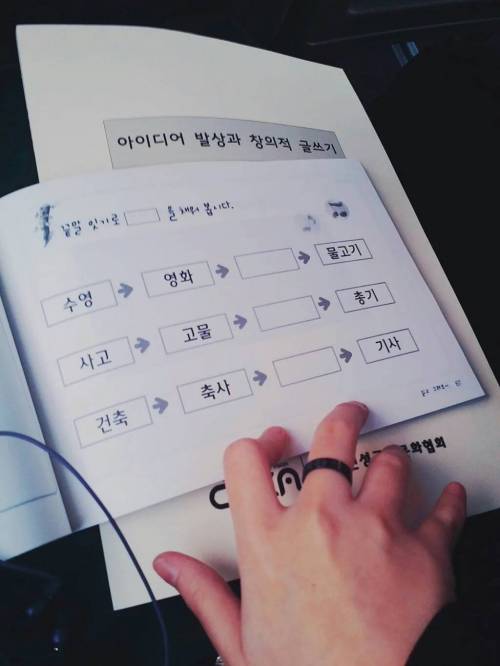 아이디어 발상과 창의적 글쓰기
끝말 잇기로 을 채워 봅시다.
수영 영화 물고기
사고 고물 총기
건축 축사 기사